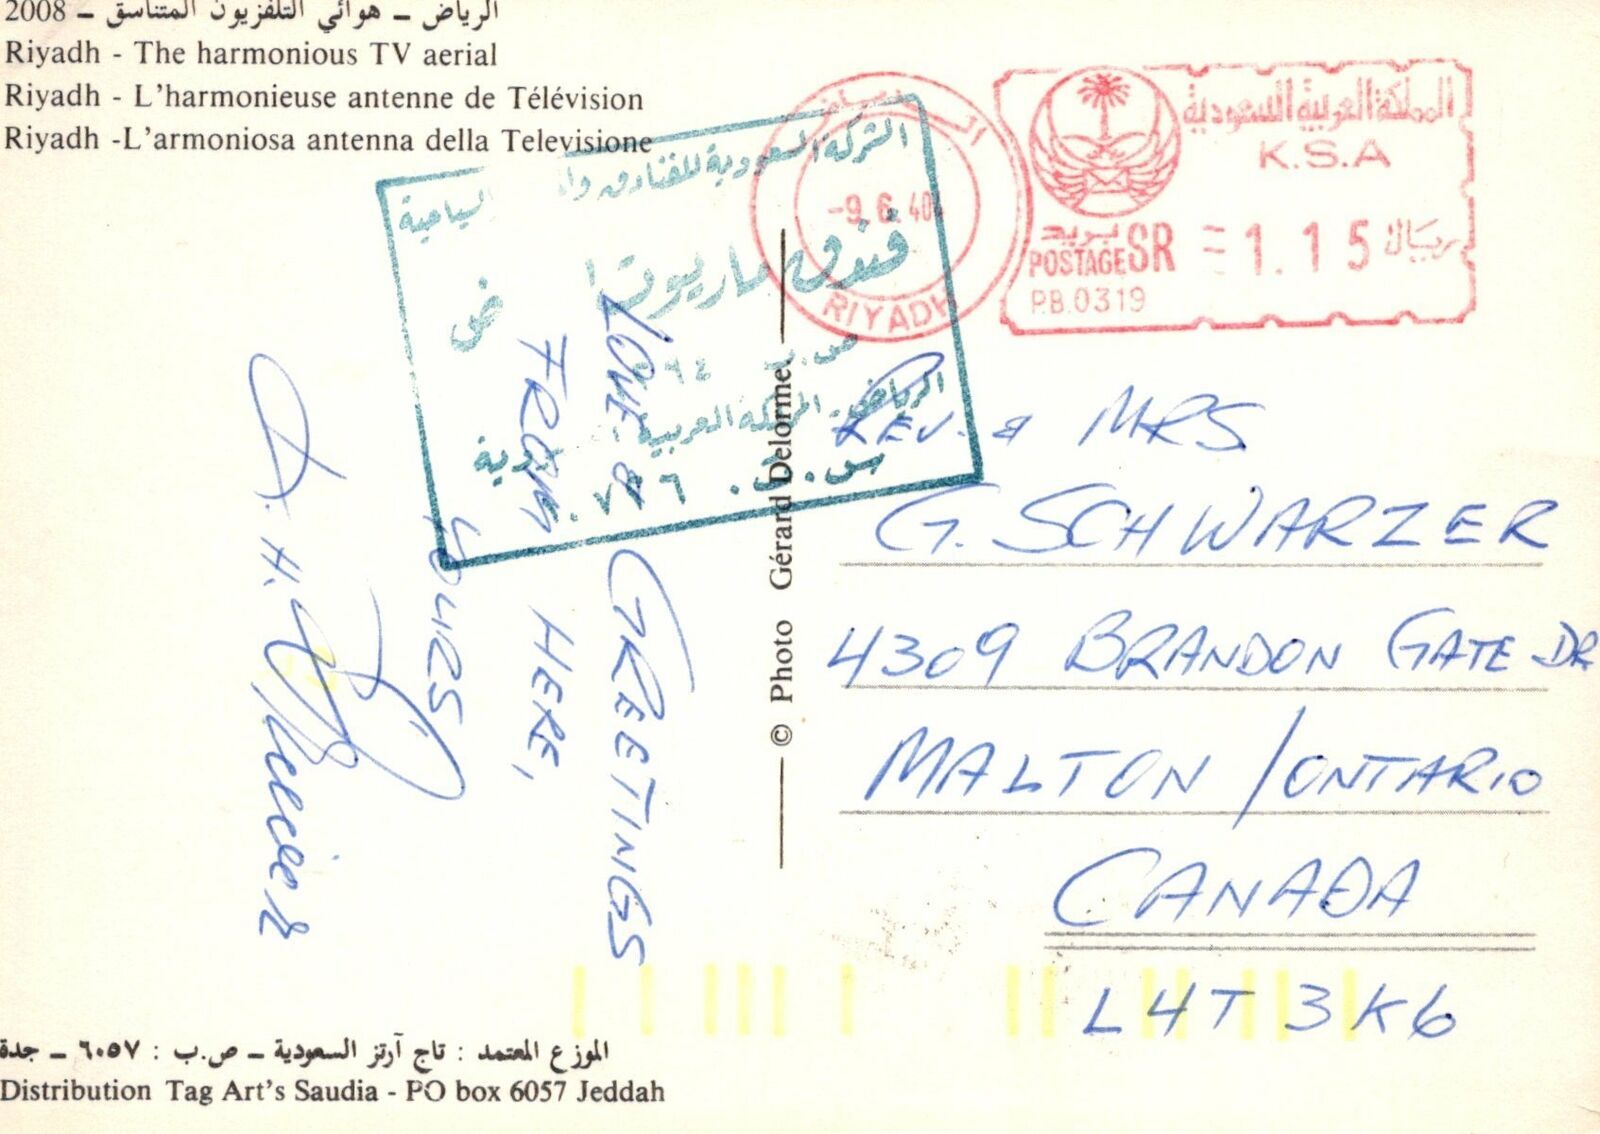 2008 – الرياض – هوائي التلفزيون المتناسق
Riyadh - The harmonious TV aerial
Riyadh - L'harmonieuse antenne de Télévision
Riyadh -L'armoniosa antenna della Televisione
الشركة السعودية للفنادق السياحية
فندق ماريوت
ص.ب
الرياض - المملكة العربية
س.ت.
الرياض
-9.6.40
RIYADH
المملكة العربية السعودية
K.S.A
بريد
POSTAGE SR = 1.15 ريال
P.B.0319
LOVE & GREETINGS
FROM HERE,
YOURS
© Photo Gérard Delorme
REV. & MRS
G. SCHWARZER
4309 BRANDON GATE DR
MALTON / ONTARIO
CANADA
L4T 3K6
الموزع المعتمد : تاج آرتز السعودية – ص.ب : ٦٠٥٧ – جدة
Distribution Tag Art's Saudia - PO box 6057 Jeddah